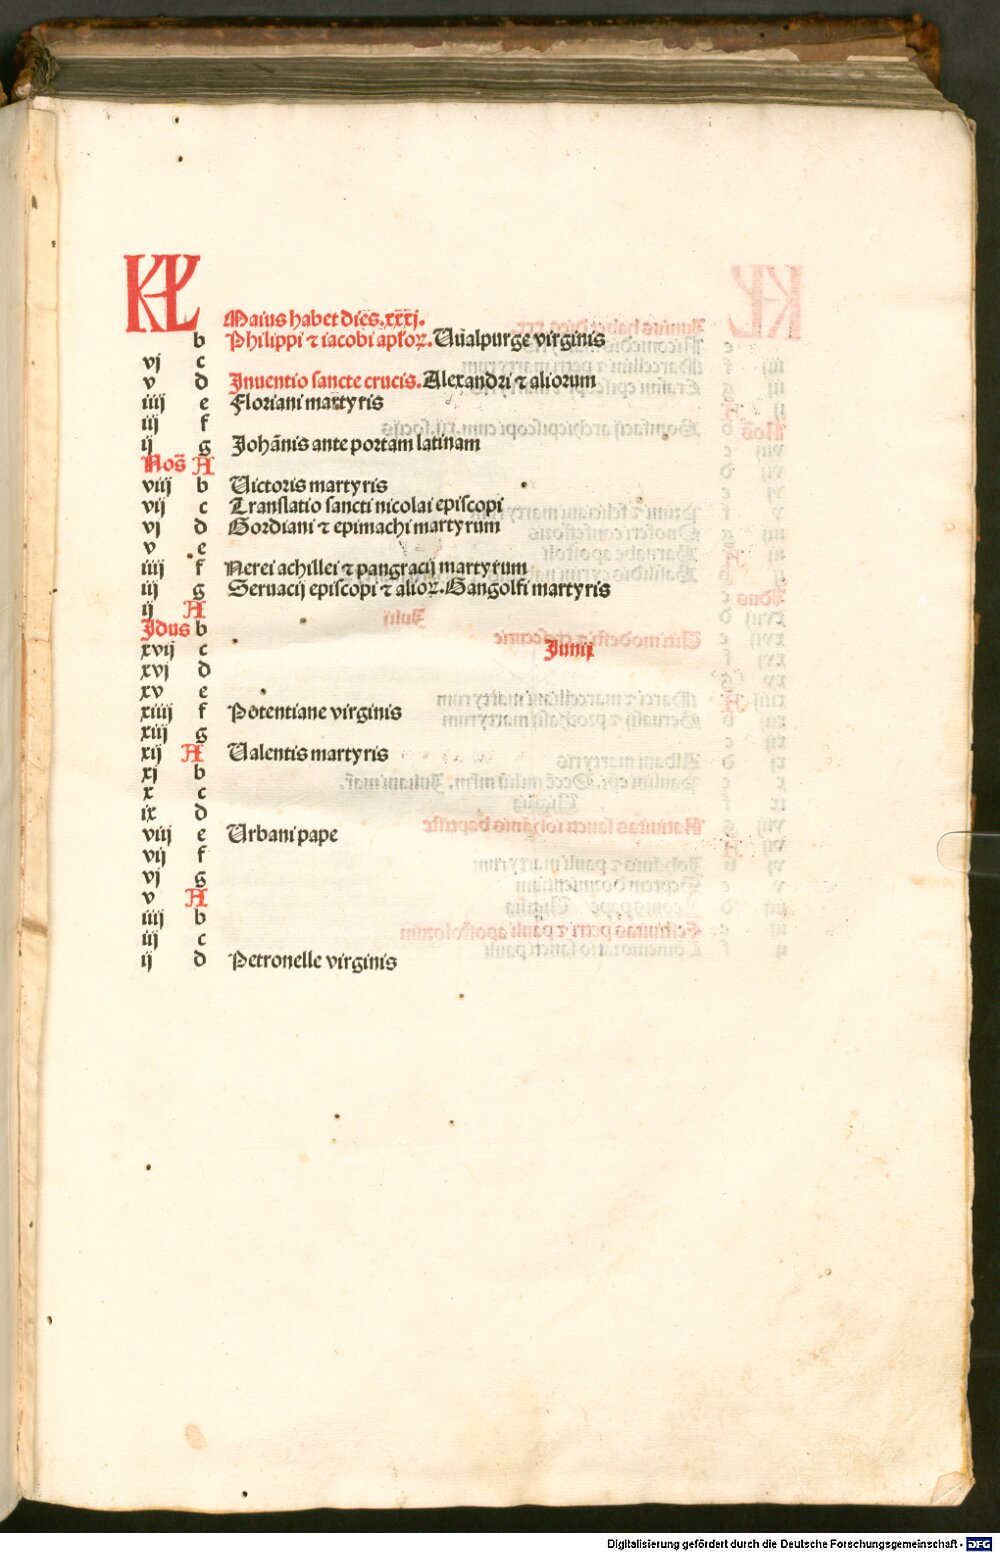 KL
Maius habet dies.xxxj.
b Philippi ⁊ iacobi aplõꝝ. Uualpurge virginis
vj c
v d Inuentio sancte crucis. Alexandri ⁊ aliorum
iiij e Floriani martyris
iij f
ij g Johãnis ante portam latinam
Noñ A
viij b Uictoris martyris
vij c Translatio sancti nicolai episcopi
vj d Gordiani ⁊ epimachi martyrum
v e
iiij f Nerei achillei ⁊ pangracij martyrum
iij g Seruacij episcopi ⁊ alioꝝ. Gangolfi martyris
ij A
Idus b
xvij c Junij
xvj d
xv e
xiiij f Potentiane virginis
xiij g
xij A Ualentis martyris
xj b
x c
ix d
viij e Urbani pape
vij f
vj g
v A
iiij b
iij c
ij d Petronelle virginis
Digitalisierung gefördert durch die Deutsche Forschungsgemeinschaft - DFG